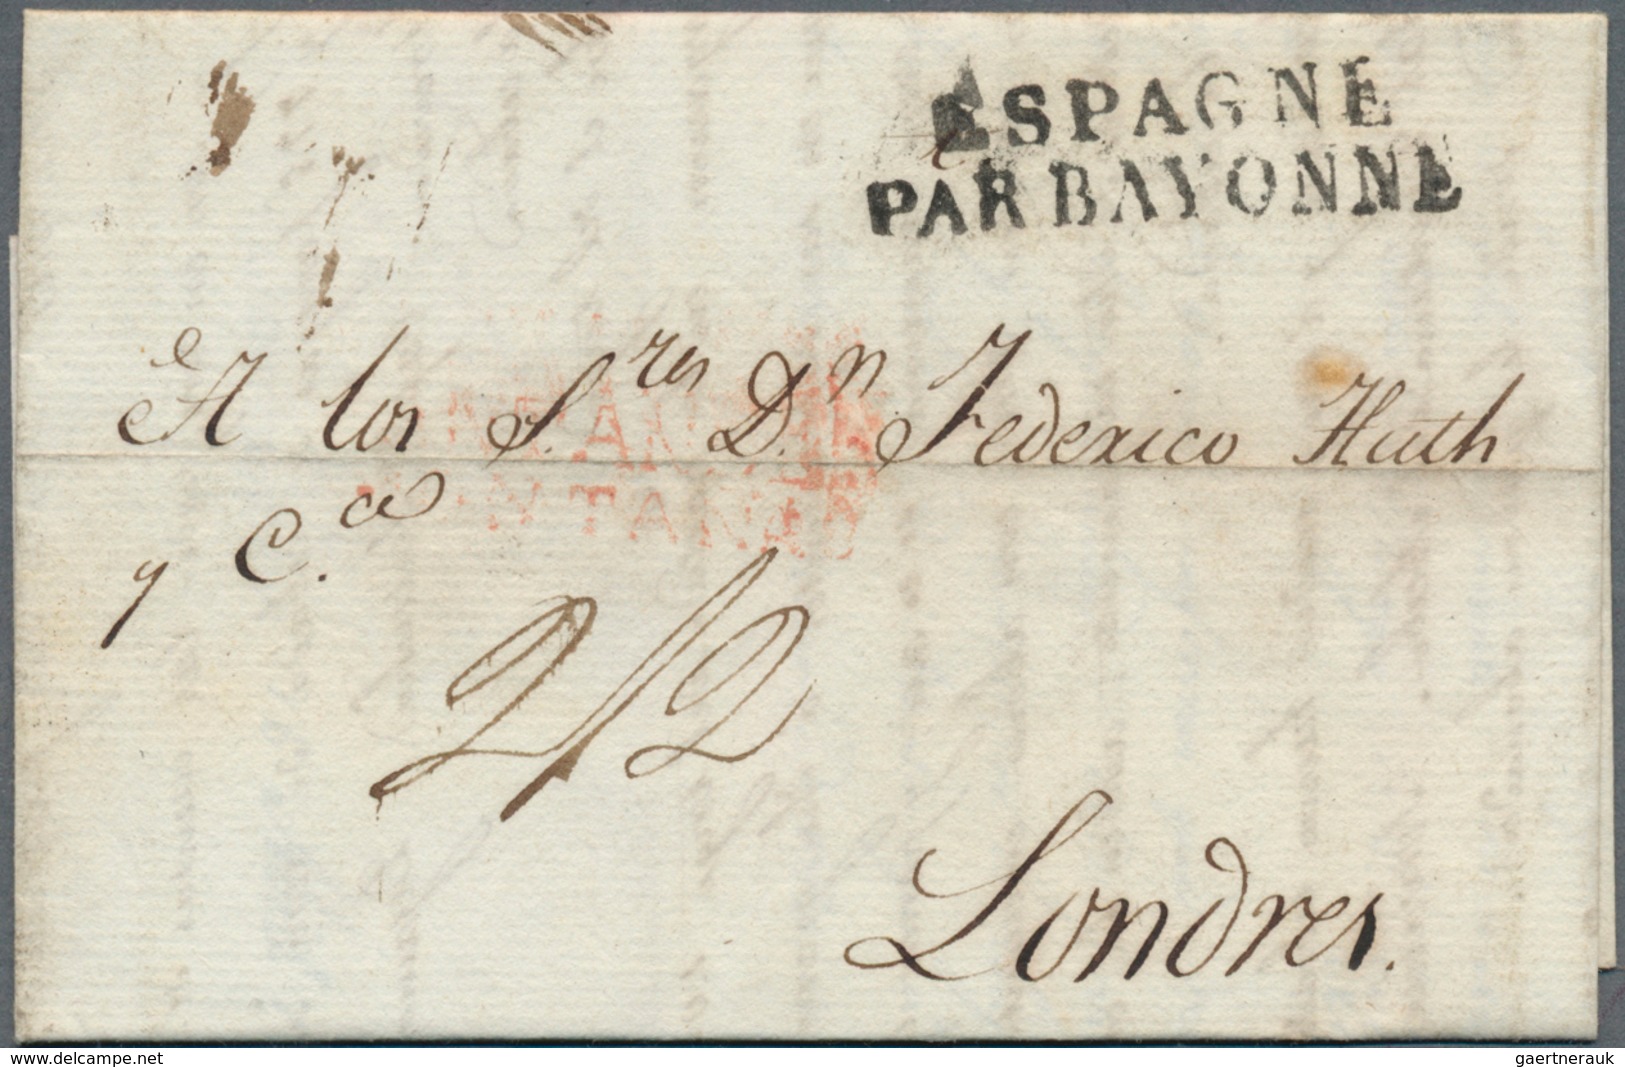 ESPAGNE
PAR BAYONNE
A los S.res D.n Federico Huth
y C.ca
2/2
Londres.
www.delcampe.net
gaertnerauk